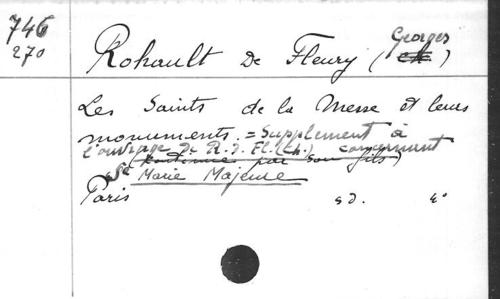 746
270
Rohault de Fleury (Georges)
Les Saints de la Messe et leurs
monuments. = Supplément à
l'ouvrage de R. d. Fl. (Ch.) concernant
(continué par son fils)
Ste Marie Majeure
Paris sd. 4°